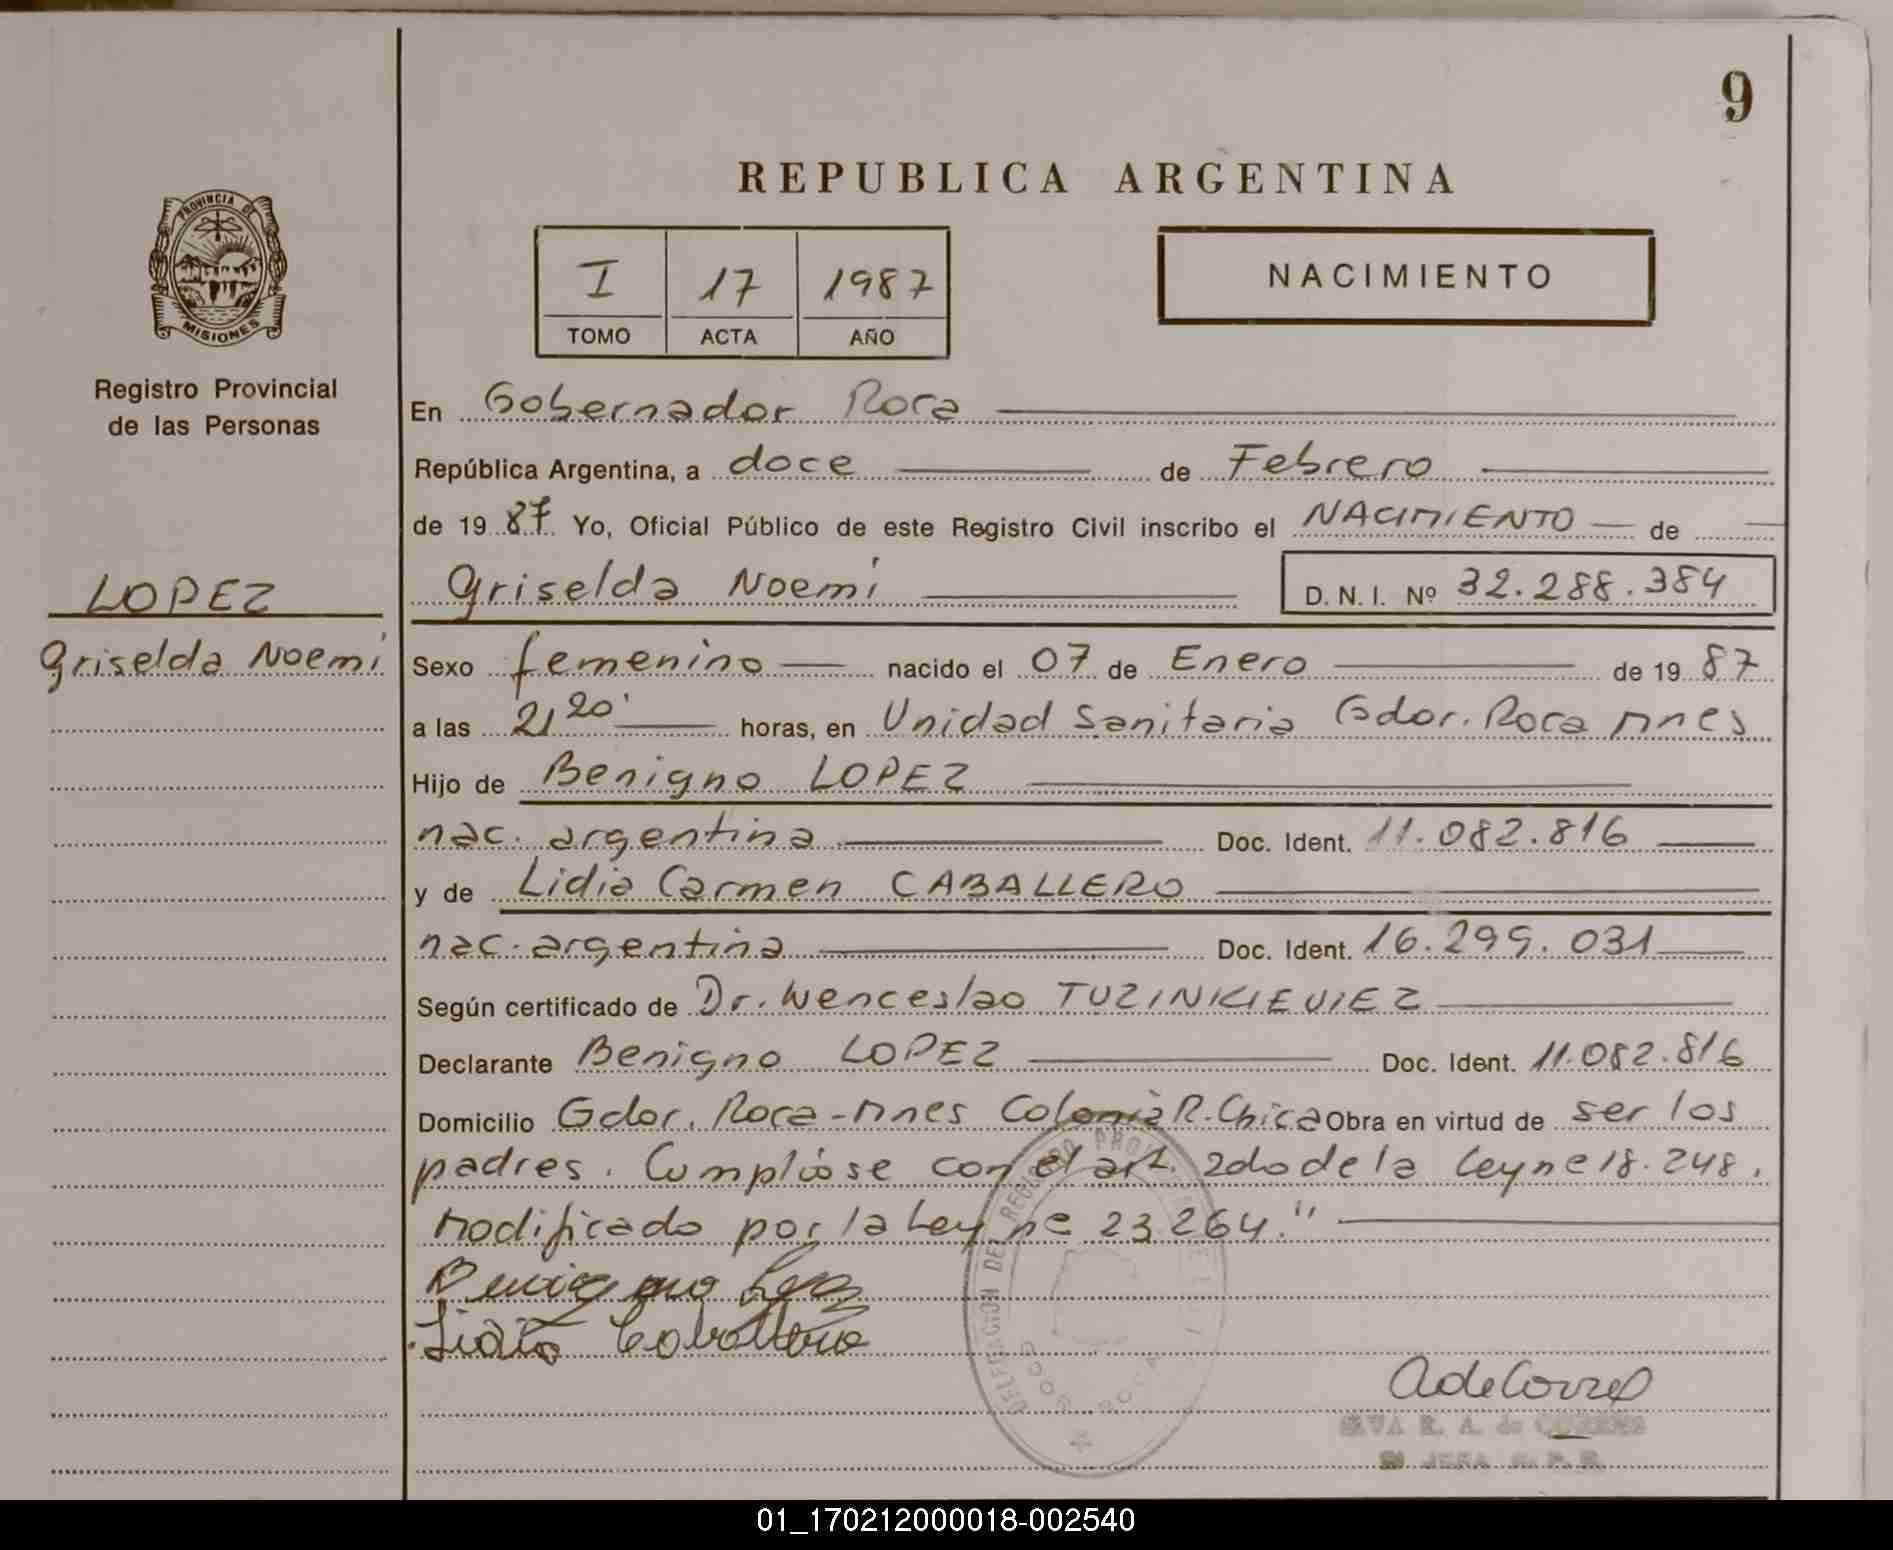 9
REPUBLICA ARGENTINA
PROVINCIA DE
MISIONES
Registro Provincial
de las Personas
I 17 1987
TOMO ACTA AÑO
NACIMIENTO
En Gobernador Roca
República Argentina, a doce de Febrero
de 19 87 Yo, Oficial Público de este Registro Civil inscribo el NACIMIENTO de
LOPEZ
Griselda Noemi
Griselda Noemí D. N. I. Nº 32.288.384
Sexo femenino nacido el 07 de Enero de 19 87
a las 21 20' horas, en Unidad Sanitaria Gdor. Roca Mnes
Hijo de Benigno LOPEZ
nac. argentina Doc. Ident. 11.082.816
y de Lidia Carmen CABALLERO
nac. argentina Doc. Ident. 16.299.031
Según certificado de Dr. Wenceslao TUZINKIEVIEZ
Declarante Benigno LOPEZ Doc. Ident. 11.082.816
Domicilio Gdor. Roca-Mnes Colonia R. Chica Obra en virtud de ser los
padres. Cumplióse con el art. 2do de la Ley nº 18.248.
Modificado por la Ley nº 23.264."
Benigno Lopez
Lidia Caballero
DELEGACION DEL REGISTRO
GDOR ROCA
R. A. de
2º JEFA R. P. P.
01_170212000018-002540